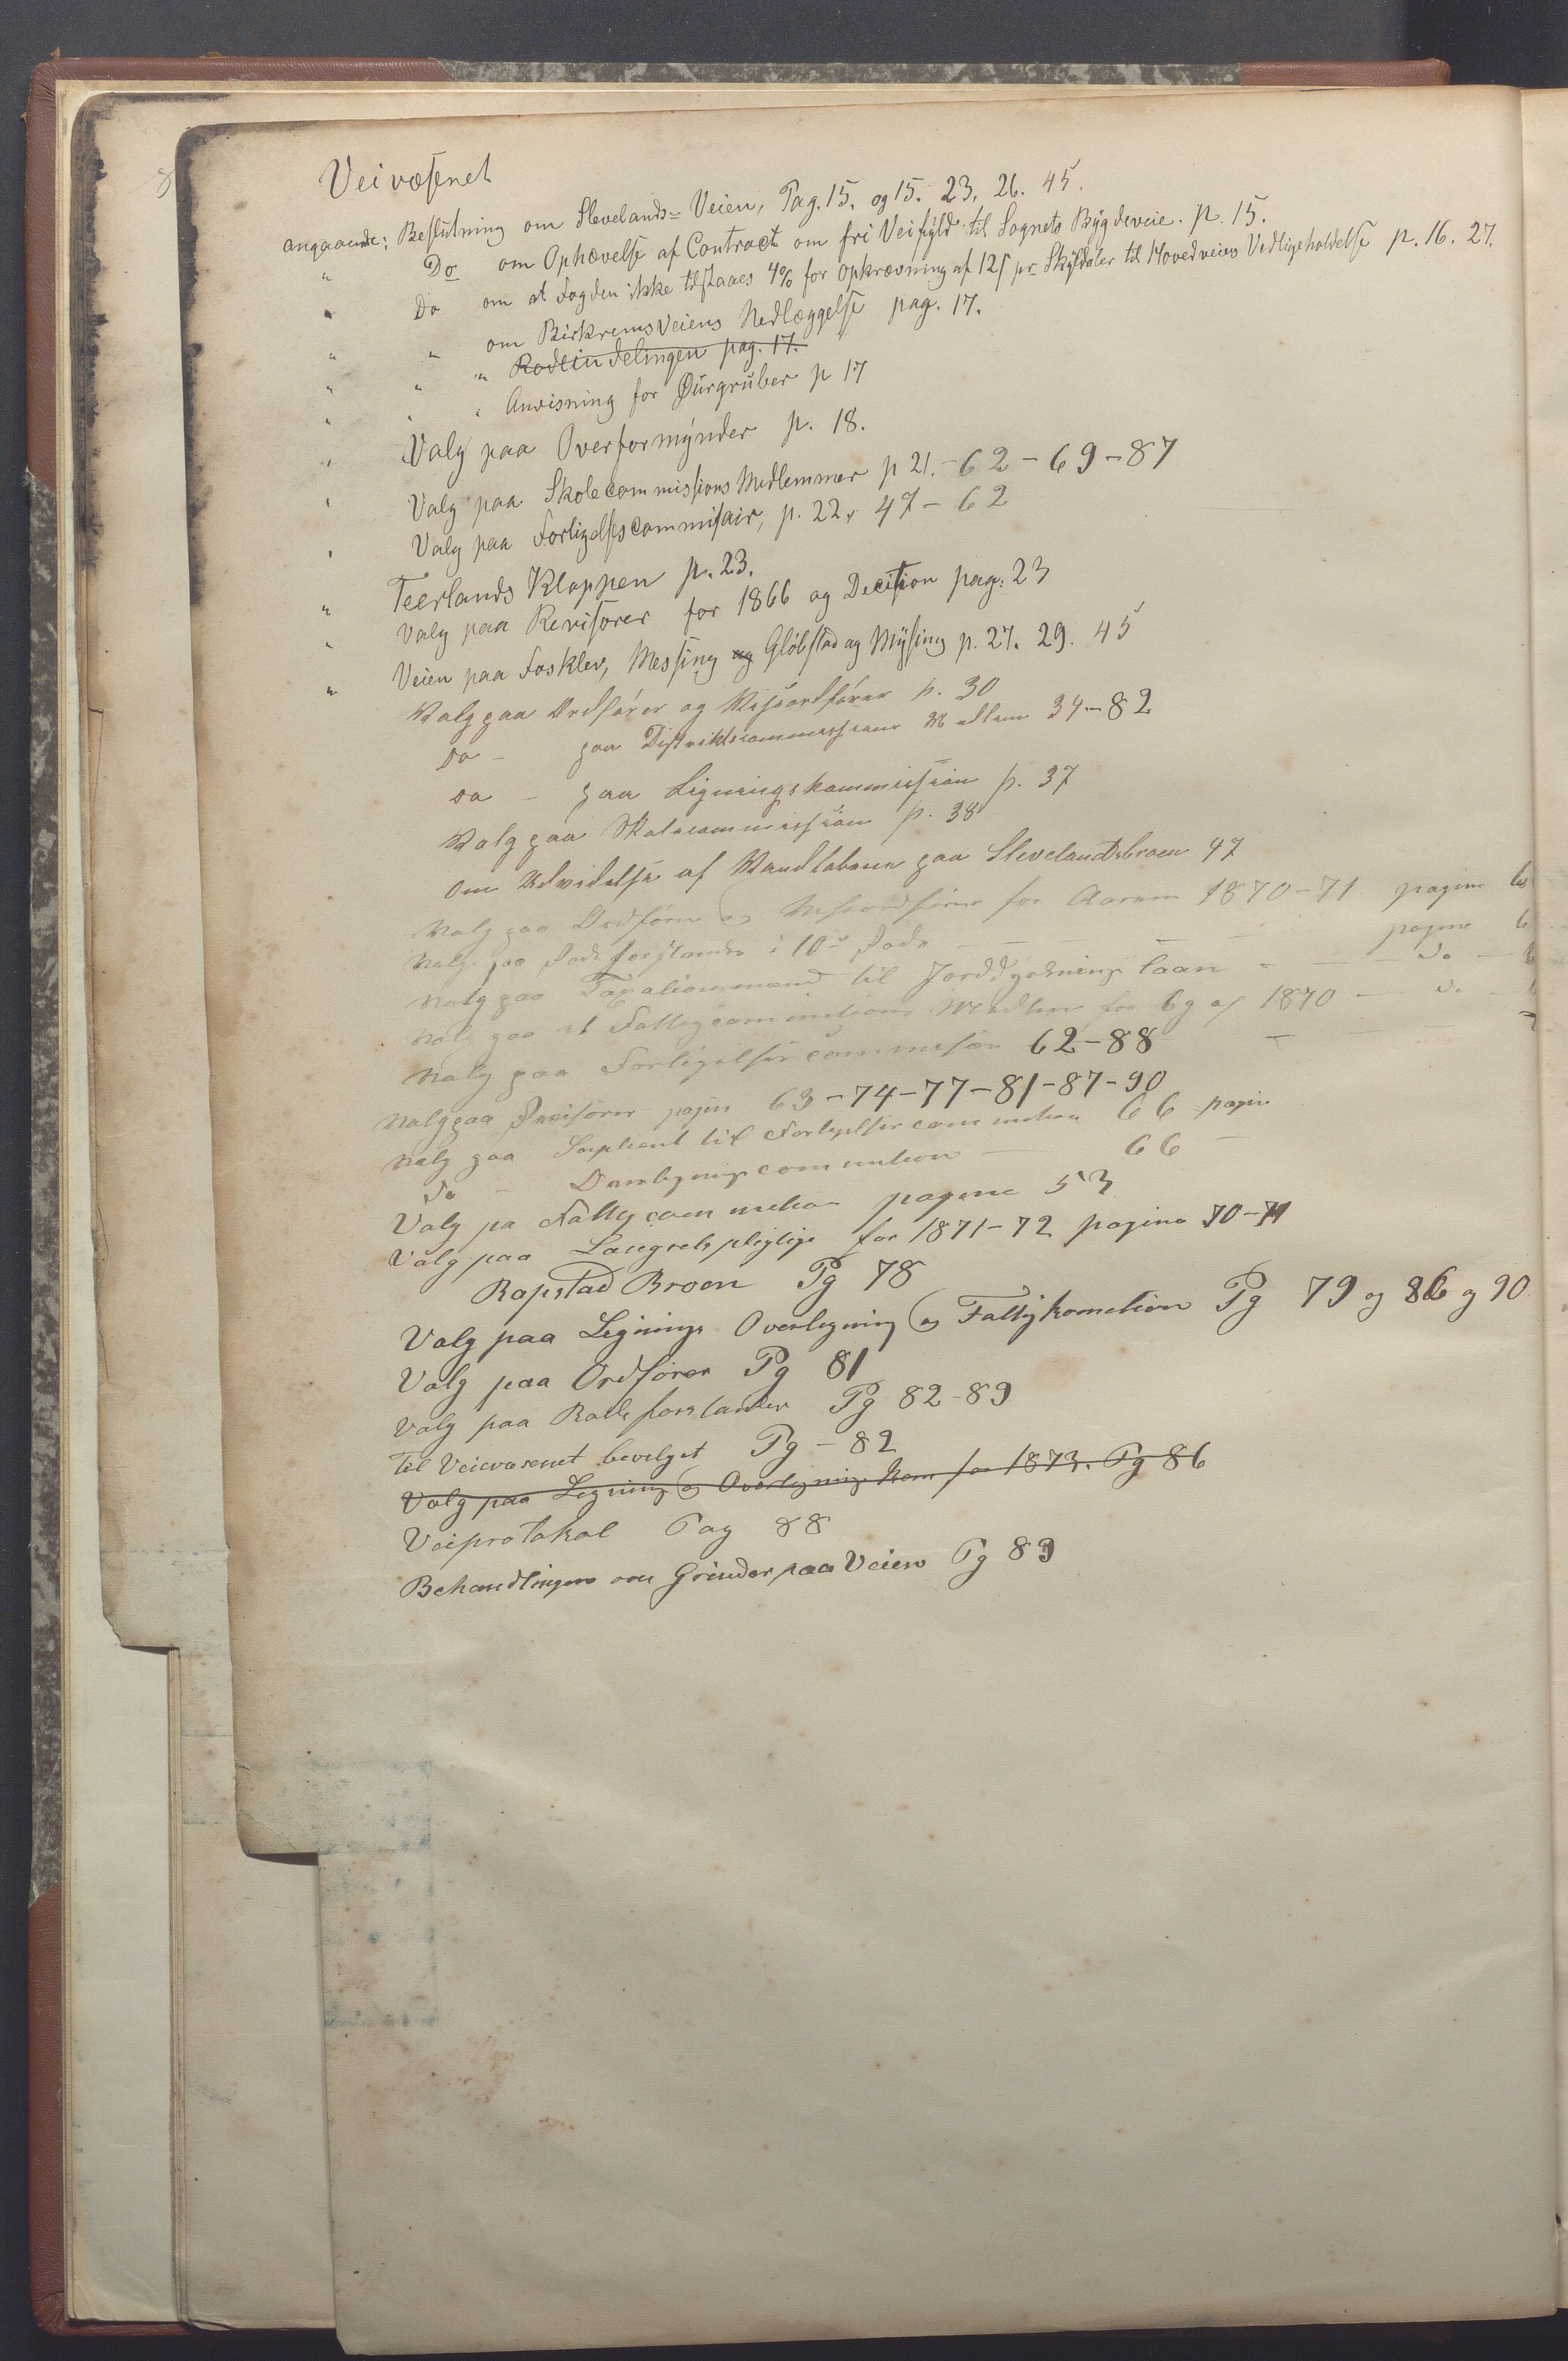 Veivæsenet
angaaende: Beslutning om Slevelands-Veien, Pag. 15. og 15. 23. 26. 45.
" Do om Ophævelse af Contract om fri Veifyld til Sognets Bygdeveie. p. 15.
" Do om at Fogden ikke tilstaaes 4% for Opkrævning af 12 s pr. Skylddaler til Hovedveies Vedligeholdelse p. 16. 27.
" " om Birkrems Veiens Nedlæggelse pag. 17.
" " " Rodeinddelingen pag. 17.
" " " Anvisning for Guurgruber p 17
" Valg paa Overformynder p. 18.
" Valg paa Skolecommissions Medlemmer p 21. - 62 - 69 - 87
" Valg paa Forligelsescommissair, p. 22, 47 - 62
" Teerlands Kloppen p. 23.
" Valg paa Revisorer for 1866 og Decision pag. 23
" Veien paa Fosklev, Messing og Gløbstad og Mysing p. 27. 29. 45
Valg paa Ordfører og Viseordfører p. 30
Do - paa Distriktscommissions Medlem 34-82
Do - paa Ligningskommission p. 37
Valg paa Skolecommission p. 38
Om Udvidelse af Vandløbene paa Slevelandsbroen 47
Valg paa Ordfører og Viseordfører for Aarene 1870-71 pagina 6
Valg paa Rodeforstander i 10de Rode pagina 6
Valg paa Taxationsmænd til Jorddyrkningslaan - Do
Valg paa et Fattigcommissions Medlem for 69 og 1870 - Do
Valg paa Forligelsescommissær 62-88
Valg paa Revisorer pagin 63-74-77-81-87-90
Valg paa Suplient til Forligelsescommission 66 pagin
Do - Overligningscommission 66 -
Valg pa Fattigcommission pagina 53
Valg paa Laugretspligtige for 1871-72 pagina 70-71
Rapstad Broen Pg 78
Valg paa Lignings Overligning og Fattigkomation Pg 79 og 86 og 90
Valg paa Ordfører Pg 81
Valg paa Rodeforstander Pg 82-89
Til Veievæsenet bevilget Pg - 82
Valg paa Ligning og Overlignings Kom for 1873. Pg 86
Veiprotokol Pag 88
Behandlingen om Grinder paa Veien Pg 89